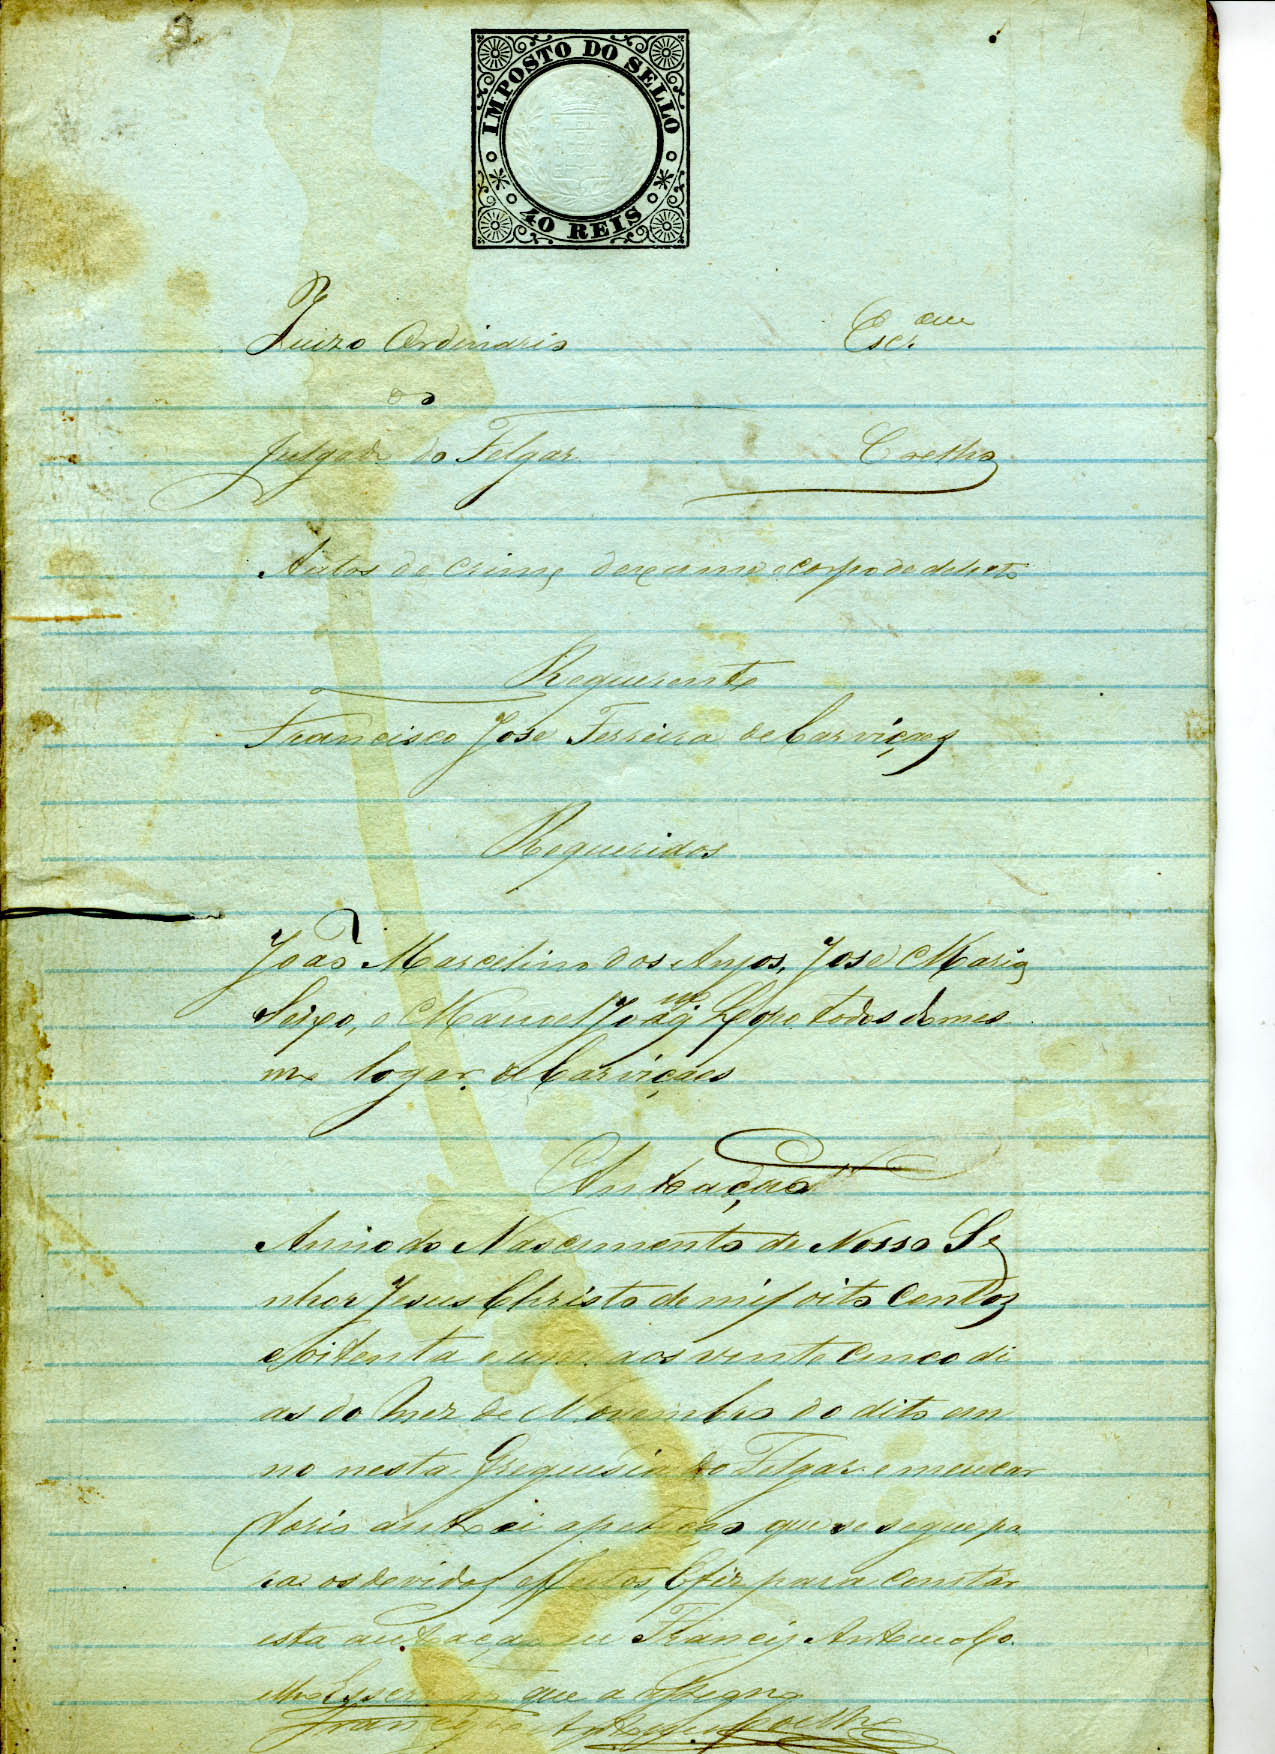 IMPOSTO DO SELLO
40 REIS
Juizo Ordinario
Escr.am
do
Julgado do Felgar
Coelho
Autos de crime dexame e corpo de delicto
Requerente
Francisco Jose Ferreira de Carviçaes
Requeridos
João Marcelino dos Anjos, Jose Maria
e Manoel Joaqm Lopo todos do mes
mo logar de Carviçaes
Autuação
Anno do Nascimento de Nosso Se
nhor Jesus Christo de mil oito centos
e oitenta e um aos vinte cinco di
as do mez de Novembro do dito an
no nesta freguesia do Felgar e meu car
torio autoei a petição que se segue pa
ra os devidos effeitos, E fiz para constar
esta autoação eu Francisco Antonio Co
elho que a assigno
Francisco Antonio Coelho